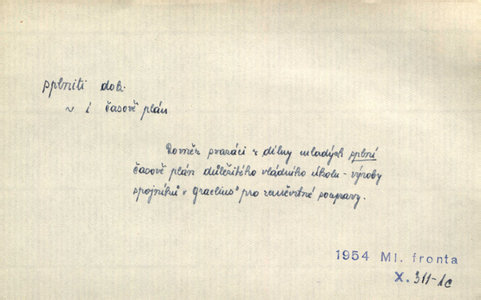 splniti dok.
~ i časově plán
Rovněž svazáci z dílny mladých splní
časově plán důležitého vládního úkolu - výroby
spojníků "Graelius" pro závěsné soupravy.
1954 Ml. fronta
X. 311-1c